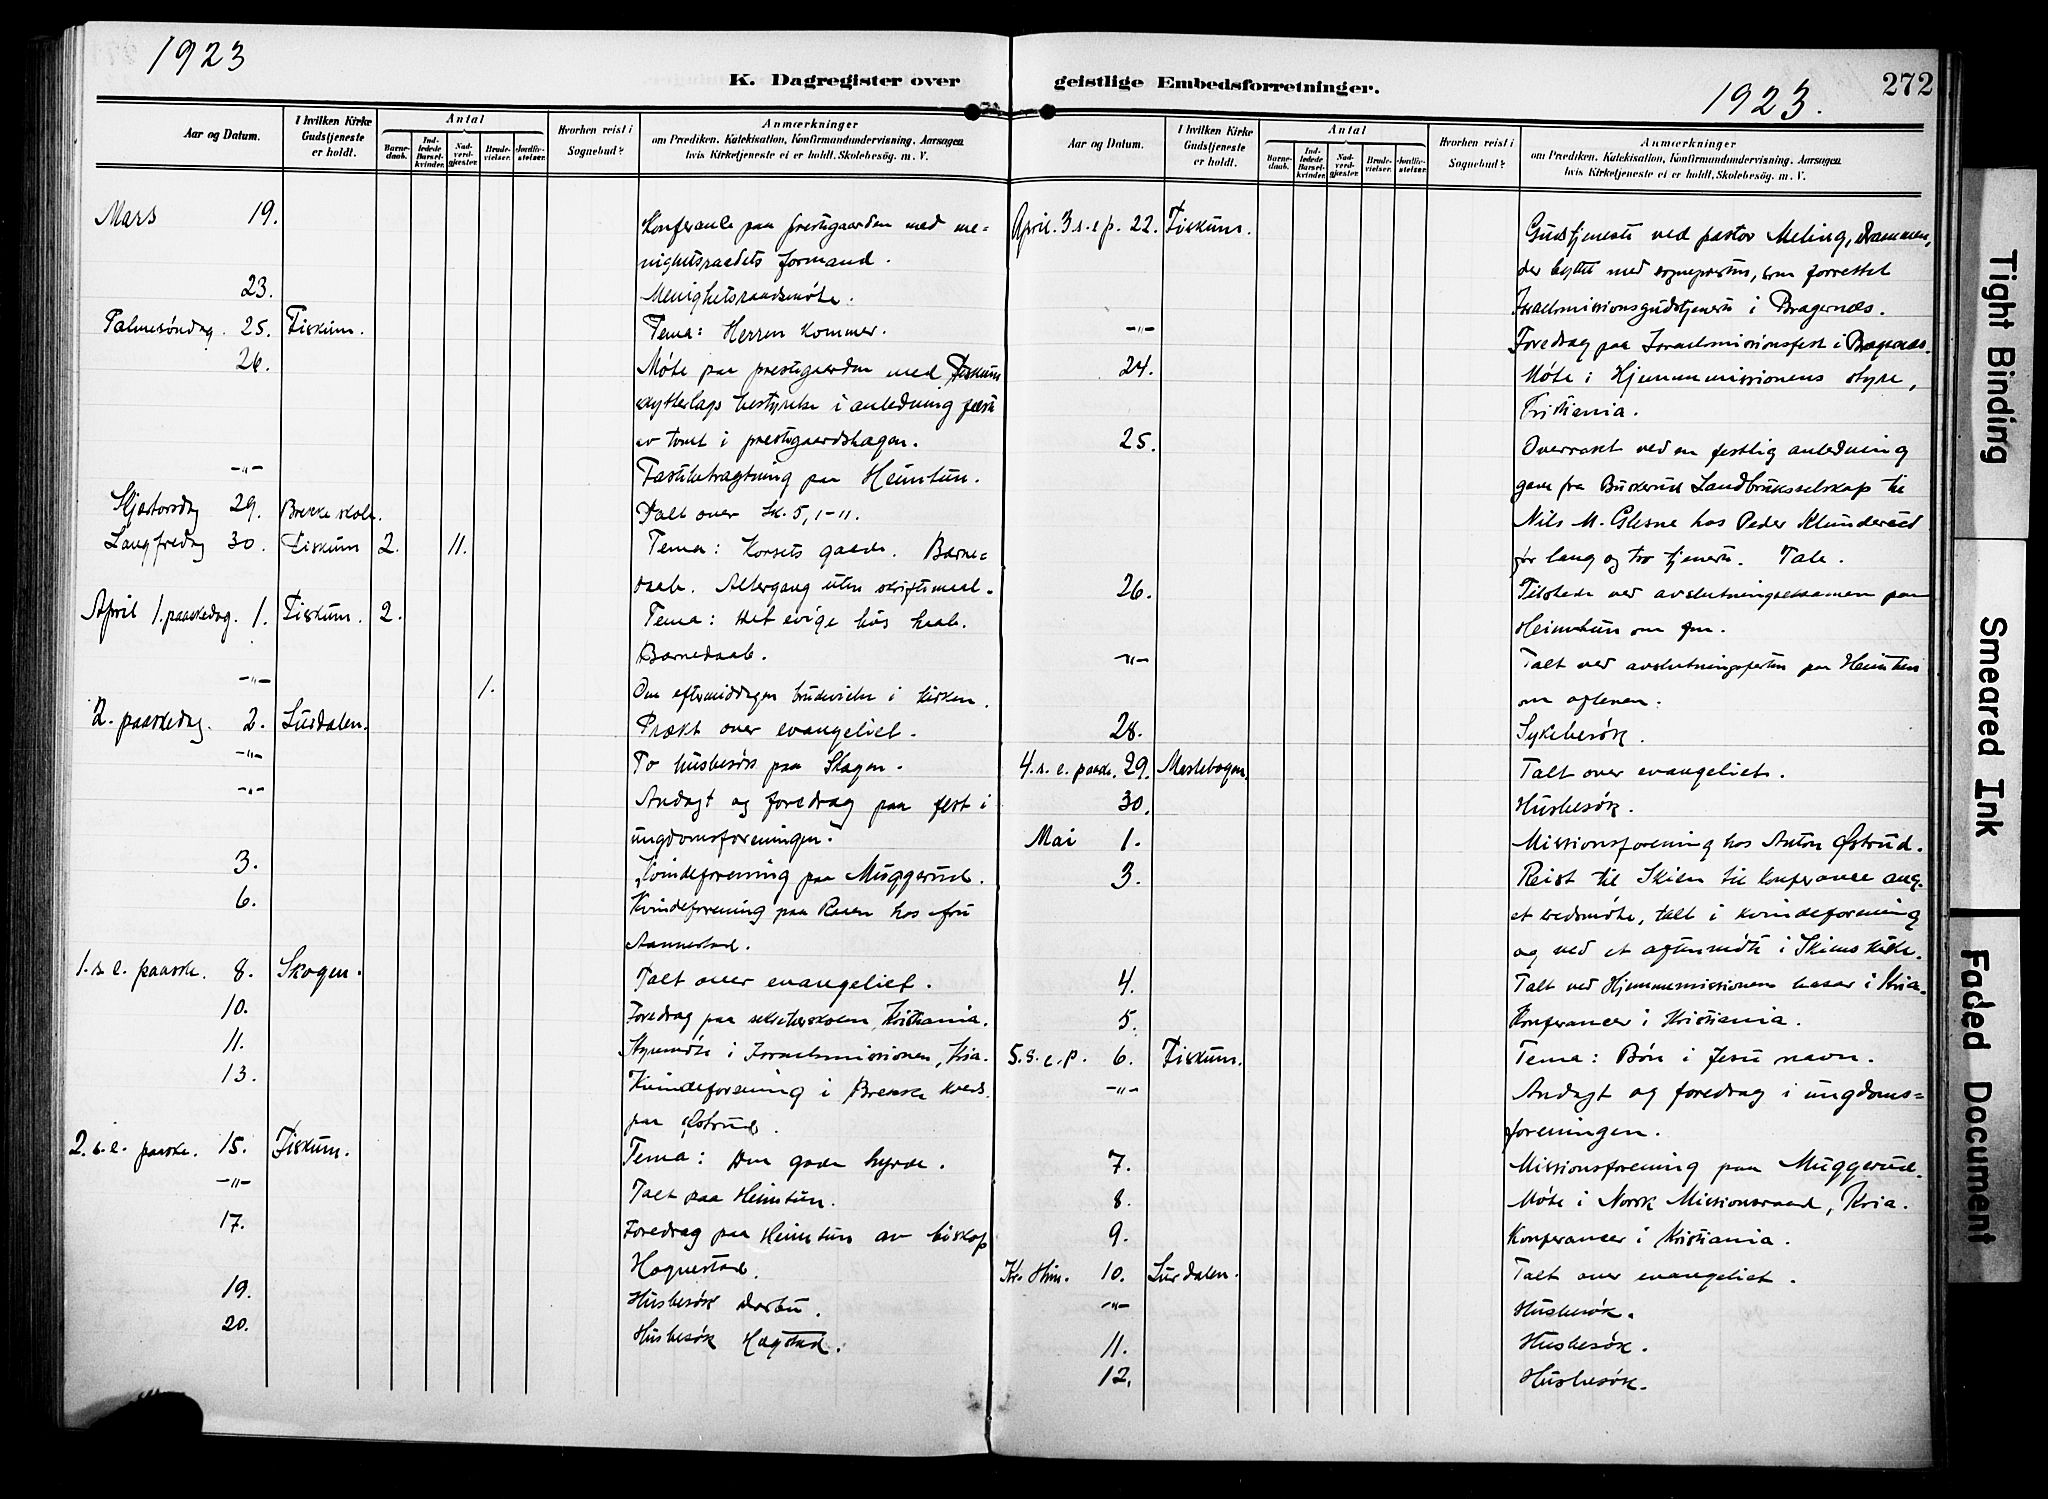 1923
K. Dagregister over
geistlige Embedsforretninger.
1923.
272
Aar og Datum.
I hvilken Kirke Gudstjeneste er holdt.
Antal
Barnedaab.
Indledede Barselkvinder.
Nadverdgjester.
Brudevielser.
Jordfæstelser.
Hvorhen reist i Sognebud?
Anmærkninger
om Prædiken, Katekisation, Konfirmandundervisning, Aarsagen
hvis Kirketjeneste ei er holdt, Skolebesög m. V.
Mars 19. Konferanse paa prestegaarden med me-
nighetsraadets formand.
23. Menighetsraadsmøte.
Palmesøndag. 25. Fiskum. Tema: Herren kommer.
26. Møte paa prestegaarden med Fiskum
skytterlags bestyrelse i anledning fæste
av tomt i prestegaardshagen.
-"- Fastebetragtning paa Heimtun.
Skjærtorsdag 29. Brekke skole. Talt over Lk. 5, 1-11.
Langfredag 30. Fiskum 2. 11. Tema: Korsets gaade. Barne-
daab. Altergang uten skriftemaal.
April 1. paaskedag. 1. Fiskum. 2. Tema: Det evige livs haab.
Barnedaab.
-"- 1. Om eftermiddagen brudevielse i kirken.
2. paaskedag. 2. Surdalen. Prækt over evangeliet.
-"- To husbesøk paa Skogen.
-"- Andagt og foredrag paa fest i
ungdomsforeningen.
3. Kvindeforening paa Muggerud.
6. Kvindeforening paa Ruen hos fru
Aannestad.
1. s. e. paaske. 8. Skogen. Talt over evangeliet.
10. Foredrag paa sekretærskolen, Kristiania.
11. Styremøte i Israelsmissionen, Kria.
13. Kvindeforening i Brekke kreds
paa Østrud.
2. s. e. paaske. 15. Fiskum. Tema: Den gode hyrde.
-"- Talt paa Heimtun.
17. Foredrag paa Heimtun av biskop
Hognestad.
19. Husbesøk Darbu.
20. Husbesøk Hagstad.
Aar og Datum.
I hvilken Kirke Gudstjeneste er holdt.
Antal
Barnedaab.
Indledede Barselkvinder.
Nadverdgjester.
Brudevielser.
Jordfæstelser.
Hvorhen reist i Sognebud?
Anmærkninger
om Prædiken, Katekisation, Konfirmandundervisning, Aarsagen
hvis Kirketjeneste ei er holdt, Skolebesög m. V.
April. 3 s. e p. 22. Fiskum. Gudstjeneste ved pastor Meling, Drammen,
der byttet med sognepresten, som forrettet
Israelsmissionsgudstjeneste i Bragernes.
-"- Foredrag paa Israelsmissionsfest i Bragernes.
24. Møte i Hjemmemissionens styre,
Kristiania.
25. Overrakt ved en festlig anledning
gave fra Buskerud Landbruksselskap til
Nils M. Glesne hos Peder Klunderud
for lang og tro tjeneste. Tale.
26. Tilstede ved avslutningseksamen paa
Heimtun om fm.
-"- Talt ved avslutningsfesten paa Heimtun
om aftenen.
28. Sykebesøk.
4. s. e. paaske. 29. Mestebogen. Talt over evangeliet.
30. Husbesøk.
Mai 1. Missionsforening hos Anton Østrud.
3. Reist til Skien til konferance ang.
et kredsmøte, talt i kvindeforening
og ved et aftenmøte i Skiens kirke.
4. Talt ved Hjemmemissionens basar i Kria.
5. Konferancer i Kristiania.
5. s. e. p. 6. Fiskum. Tema: Bøn i Jesu navn.
-"- Andagt og foredrag i ungdoms-
foreningen.
7. Missionsforening paa Muggerud.
8. Møte i Norsk Missionsraad, Kria.
9. Konferancer i Kristiania.
Kr. Him. 10. Surdalen. Talt over evangeliet.
-"- Husbesøk.
11. Husbesøk.
12. Husbesøk.
Tight Binding
Smeared Ink
Faded Document